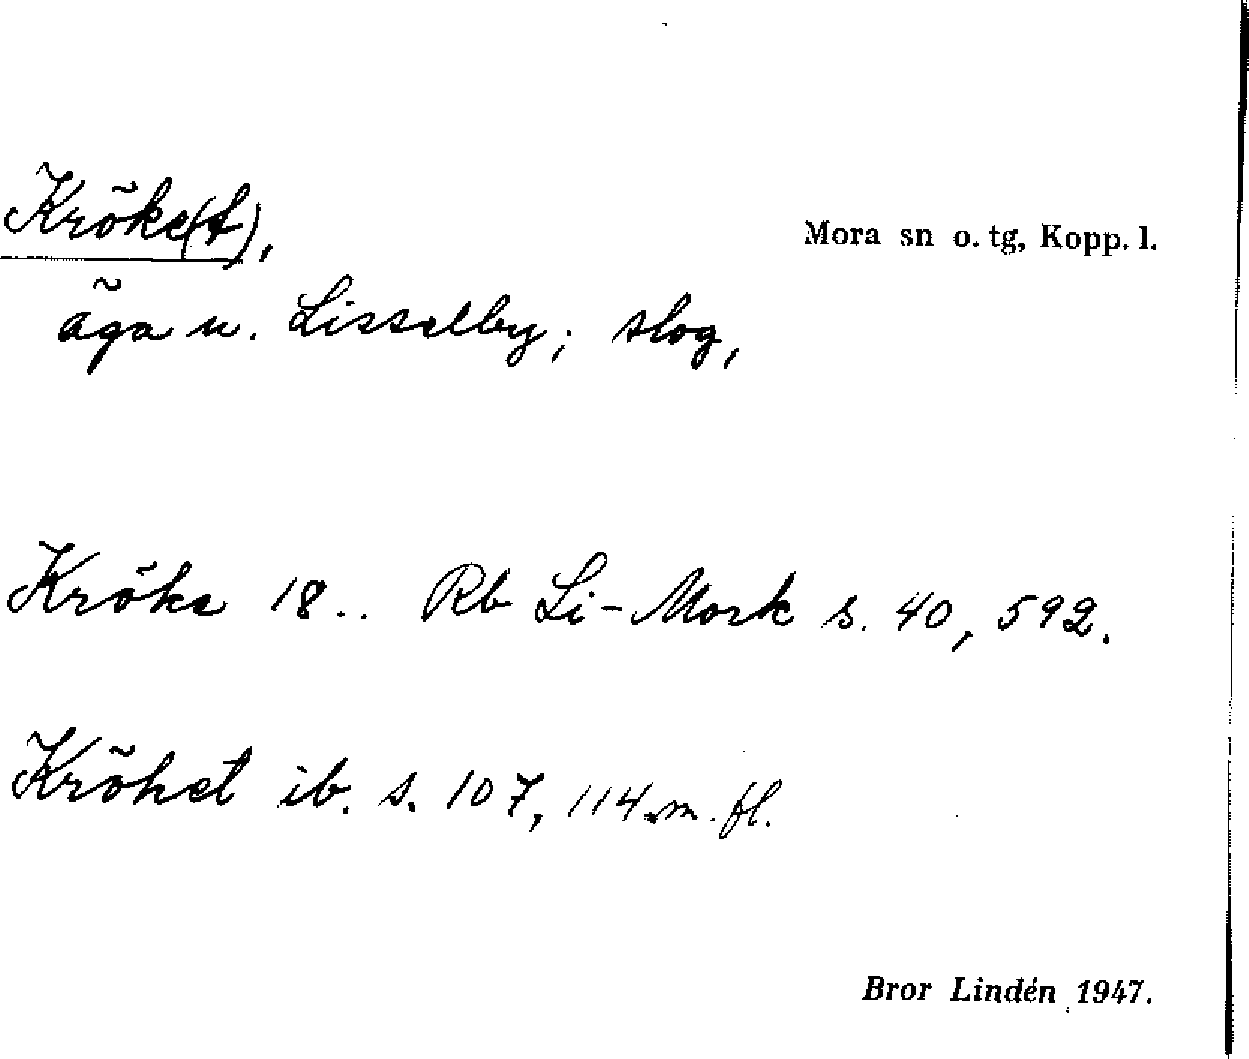 Kröke(t),
Mora sn o. tg, Kopp. l.
äga u. Lisselby; slog,
Kröke 18.. Rb Li-Mork s. 40, 592.
Kröket ib. s. 107, 114 m. fl.
Bror Lindén 1947.